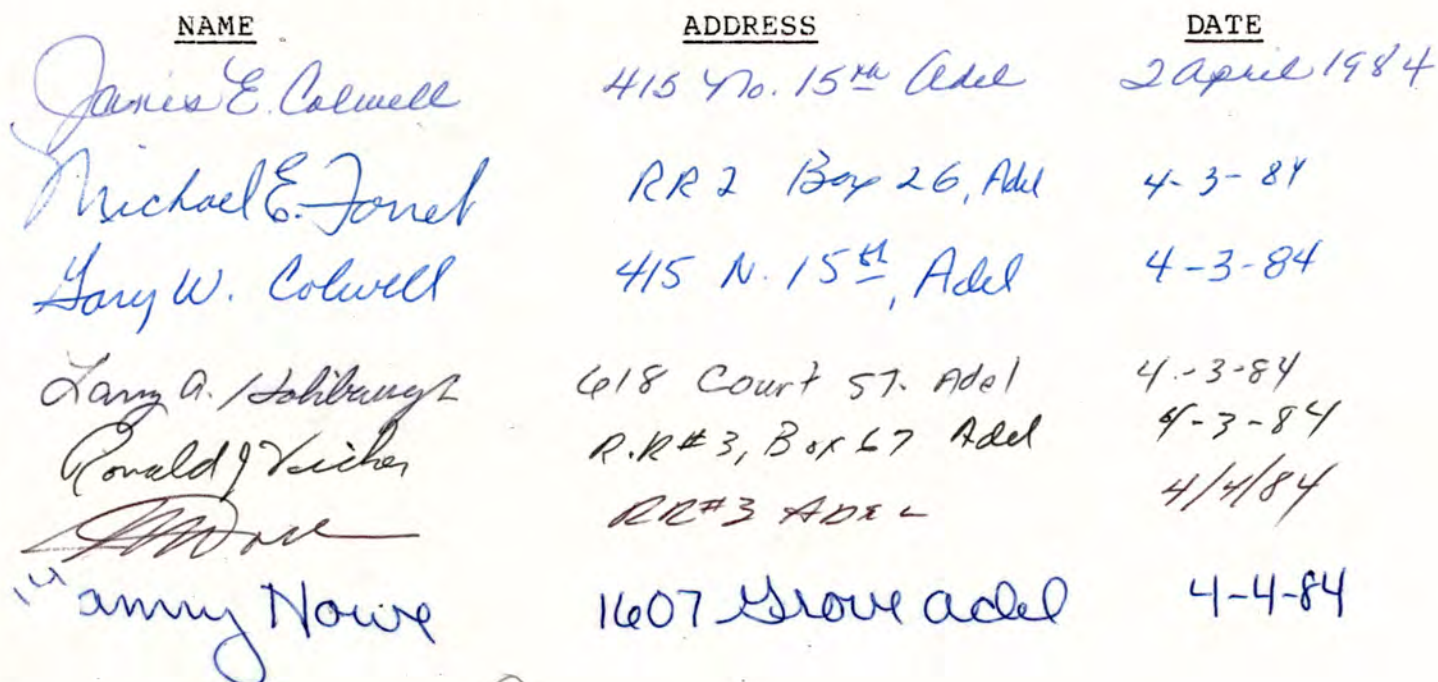 NAME ADDRESS DATE
Janis E. Colwell 415 No. 15th Adel 2 April 1984
Michael E. Forret RR 2 Box 26, Adel 4-3-84
Gary W. Colwell 415 N. 15th, Adel 4-3-84
Larry A. 618 Court ST. Adel 4-3-84
Ronald J R.R#3, Box 67 Adel 4-3-84
RR#3 ADEL 4/4/84
1607 Grove Adel 4-4-84